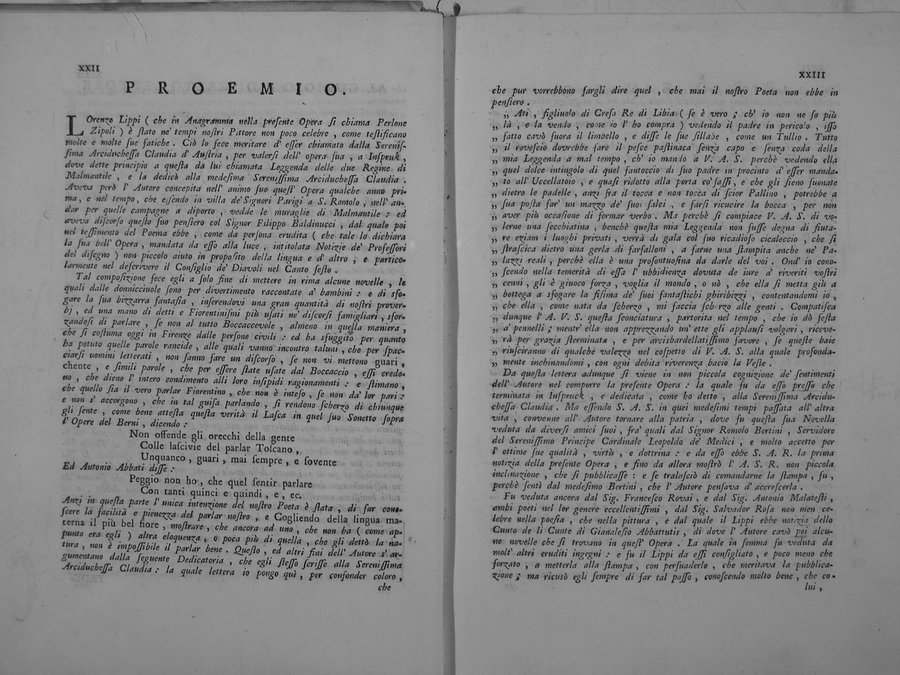 XXII
PROEMIO.
Lorenzo Lippi (che in Anagramma nella presente Opera si chiama Perlone
Zipoli) è stato ne' tempi nostri Pittore non poco celebre, come testificano
molte e molte sue fatiche. Ciò lo fece meritare d' esser chiamato dalla Serenis-
sima Arciduchessa Claudia d' Austria, per valersi dell' opera sua, a Inspruk,
dove dette principio a questa da lui chiamata Leggenda delle due Regine di
Malmantile, e la dedicò alla medesima Serenissima Arciduchessa Claudia.
Aveva però l' Autore concepita nell' animo suo quest' Opera qualche anno pri-
ma, e nel tempo, che essendo in villa de' Signori Parigi a S. Romolo, nell' an-
dar per quelle campagne a diporto, vedde le muraglie di Malmantile: ed
aveva discorso questo suo pensiero col Signor Filippo Baldinucci, dal quale poi
nel tessimento del Poema ebbe, come da persona erudita (che tale lo dichiara
la sua bell' Opera, mandata da esso alla luce, intitolata Notizie de' Professori
del disegno) non piccolo aiuto in proposito della lingua e d' altro, e partico-
larmente nel descrivere il Consiglio de' Diavoli nel Canto sesto.
Tal composizione fece egli a solo fine di mettere in rima alcune novelle, le
quali dalle donnicciuole sono per divertimento raccontate a' bambini: e di sfo-
gare la sua bizzarra fantasia, inserendovi una gran quantità di nostri prover-
bj, ed una mano di detti e Fiorentinismi più usati ne' discorsi famigliari, sfor-
zandosi di parlare, se non al tutto Boccaccevole, almeno in quella maniera,
che si costuma oggi in Firenze dalle persone civili: ed ha sfuggito per quanto
ha potuto quelle parole rancide, alle quali vanno incontro taluni, che per spac-
ciarsi uomini letterati, non sanno fare un discorso, se non vi mettono guari,
chente, e simili parole, che per essere state usate dal Boccaccio, essi credo-
no, che dieno l' intero condimento alli loro insipidi ragionamenti: e stimano,
che quello sia il vero parlar Fiorentino, che non è inteso, se non da' lor pari:
e non s' accorgono, che in tal guisa parlando, si rendono scherzo di chiunque
gli sente, come bene attesta questa verità il Lasca in quel suo Sonetto sopra
l' Opere del Berni, dicendo:
Non offende gli orecchi della gente
Colle lascivie del parlar Toscano,
Unquanco, guari, mai sempre, e sovente
Ed Antonio Abbati disse:
Peggio non ho, che quel sentir parlare
Con tanti quinci e quindi, e, ec.
Anzi in questa parte l' unica intenzione del nostro Poeta è stata, di far cono-
scere la facilità e pienezza del parlar nostro, e Cogliendo della lingua ma-
terna il più bel fiore, mostrare, che ancora ad uno, che non ha (come ap-
punto era egli) altra eloquenza, o poca più di quella, che gli dettò la na-
tura, non è impossibile il parlar bene. Questo, ed altri fini dell' Autore s' ar-
gumentano dalla seguente Dedicatoria, che egli stesso scrisse alla Serenissima
Arciduchessa Claudia: la quale lettera io pongo quì, per confonder coloro,
che
XXIII
che pur vorrebbono fargli dire quel, che mai il nostro Poeta non ebbe in
pensiero.
„ Ati, figliuolo di Creso Re di Libia (se è vero; ch' io non ne so più
„ là, e la vendo, come io l' ho compra) vedendo il padre in pericolo, isso
„ fatto cavò fuora il limbello, e disse le sue sillabe, come un Tullio. Tutto
„ il rovescio dovrebbe fare il pesce pastinaca senza capo e senza coda della
„ mia Leggenda a mal tempo, ch' io mando a V. A. S. perchè vedendo ella
„ quel dolce intingolo di quel fantoccio di suo padre in procinto d' esser manda-
„ to all' Uccellatoio, e quasi ridotto alla porta co' sassi, e che gli sieno suonate
„ dietro le padelle, anzi fra il tocca e non tocca di scior Pallino, potrebbe a
„ sua posta far' un mazzo de' suoi salci, e farsi ricucire la bocca, per non
„ aver più occasione di formar verbo. Ma perchè si compiace V. A. S. di vo-
„ lerne una secchiatina, benchè questa mia Leggenda non fusse degna di fiuta-
„ re eziam i luoghi privati, verrà di gala col suo ricadioso cicaleccio, che si
„ strascica dietro una gerla di farfalloni, a farne una stampita anche nei pa-
„ lazzi reali, perchè ella è una prosontuosina da darle del voi. Ond' io cono-
„ scendo nella temerità di essa l' ubbidienza dovuta de iure a' riveriti vostri
„ cenni, gli è giuoco forza, voglia il mondo, o nò, che ella si metta giù a
„ bottega a sfogare la fisima de' suoi fantastichi ghiribizzi, contentandomi io,
„ che ella, come nata da scherzo, mi faccia scherzo alle genti. Compatisca
„ dunque l' A. V. S. questa sconciatura, partorita nel tempo, che io dò festa
„ a' pennelli; mentr' ella non apprezzando un' ette gli applausi volgari, riceve-
„ rà per grazia sterminata, e per arcisbardellatissimo favore, se queste baie
„ riusciranno di qualche valezzo nel cospetto di V. A. S. alla quale profonda-
„ mente inchinandomi, con ogni debita riverenza bacio la Veste.
Da questa lettera adunque si viene in non piccola cognizione de' sentimenti
dell' Autore nel comporre la presente Opera: la quale fu da esso presso che
terminata in Inspruck, e dedicata, come ho detto, alla Serenissima Arcidu-
chessa Claudia. Ma essendo S. A. S. in quei medesimi tempi passata all' altra
vita, convenne all' Autore tornare alla patria, dove fu questa sua Novella
veduta da diversi amici suoi, fra' quali dal Signor Romolo Bertini, Servidore
del Serenissimo Principe Cardinale Leopoldo de' Medici, e molto accetto per
l' ottime sue qualità, virtù, e dottrina: e da esso ebbe S. A. R. la prima
notizia della presente Opera, e fino da allora mostrò l' A. S. R. non piccola
inclinazione, che si pubblicasse: e se tralasciò di comandarne la stampa, fu,
perchè sentì dal medesimo Bertini, che l' Autore pensava d' accrescerla.
Fu veduta ancora dal Sig. Francesco Rovai, e dal Sig. Antonio Malatesti,
ambi poeti nel lor genere eccellentissimi, dal Sig. Salvador Rosa non men ce-
lebre nella poesia, che nella pittura, e dal quale il Lippi ebbe notizia dello
Cunto de li Cunte di Gianalesio Abbattutis, di dove l' Autore cavò poi alcu-
ne novelle che si trovano in quest' Opera. La quale in somma fu veduta da
molt' altri eruditi ingegni: e fu il Lippi da essi consigliato, e poco meno che
forzato, a metterla alla stampa, con persuaderlo, che meritava la pubblica-
zione; ma ricusò egli sempre di far tal passo, conoscendo molto bene, che co-
lui,